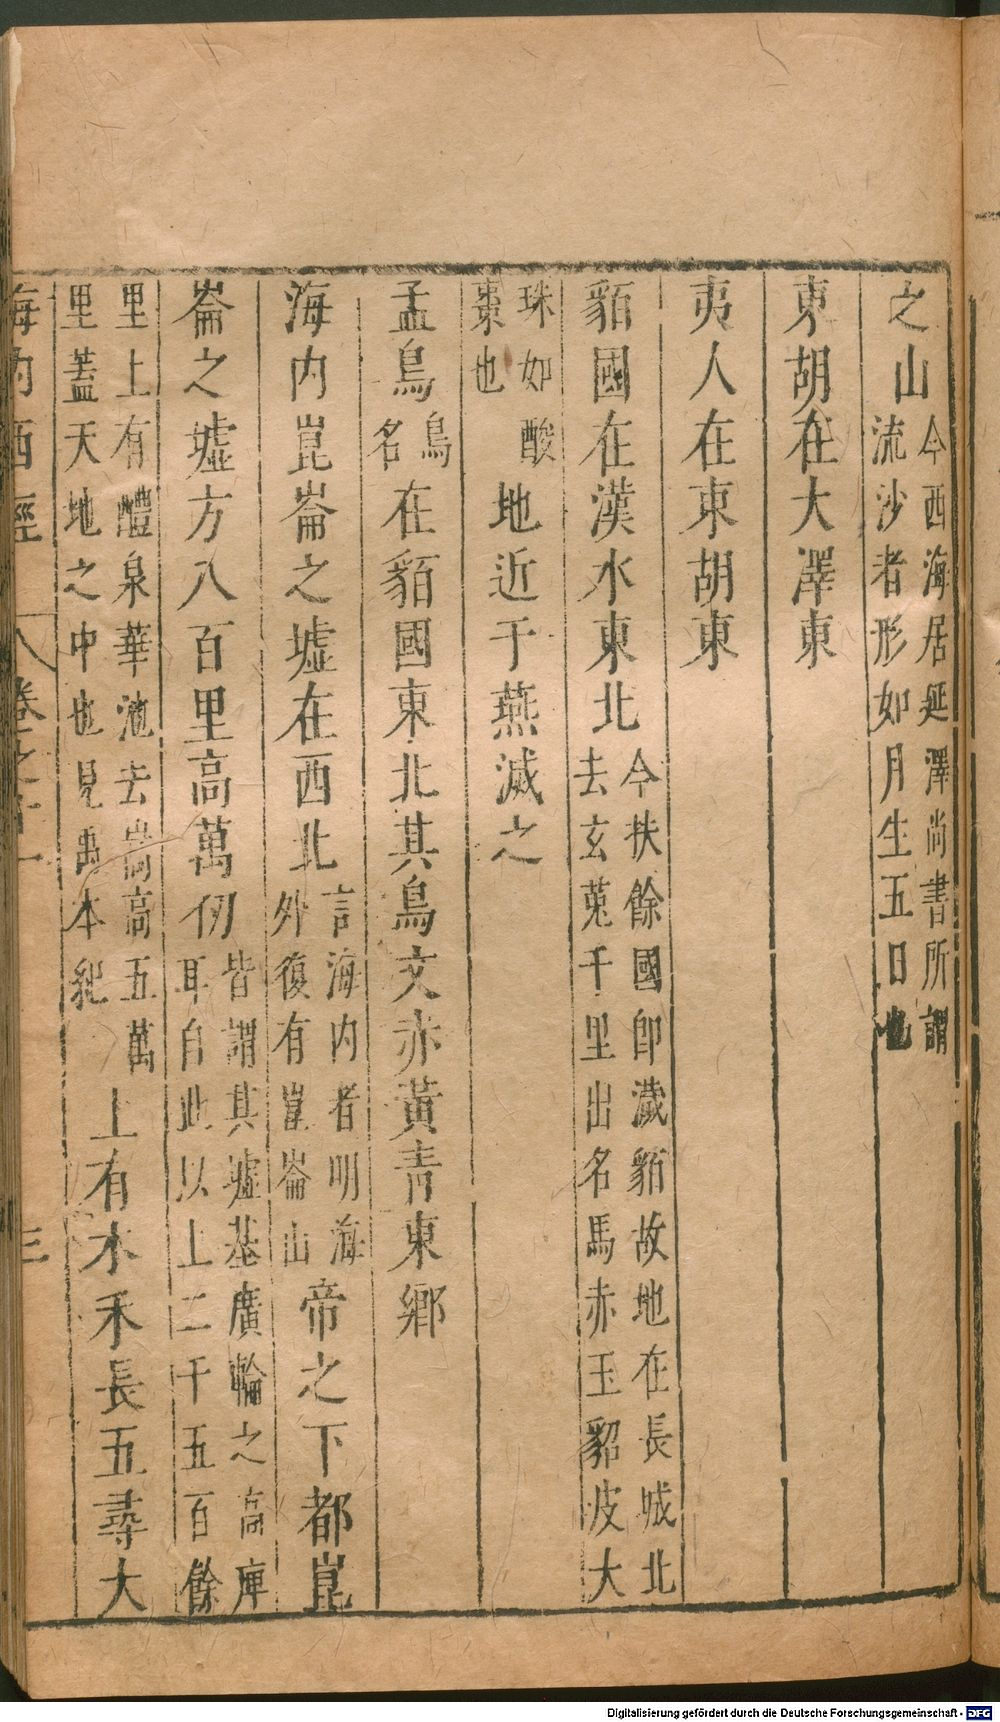 之山今西海居延澤尚書所謂流沙者形如月生五日也
東胡在大澤東
夷人在東胡東
貊國在漢水東北今扶餘國即濊貊故地在長城北去玄菟千里出名馬赤玉貂皮大
珠如酸棗也地近于燕滅之
孟鳥鳥名在貊國東北其鳥文赤黃青東鄉
海內崑崙之墟在西北言海內者明海外復有崑崙山帝之下都崑
崙之墟方八百里高萬仞皆謂其墟基廣輪之高庳耳自此以上二千五百餘
里上有醴泉華池去嵩高五萬里蓋天地之中也見禹本紀上有木禾長五尋大
海內西經 卷之十一 三
Digitalisierung gefördert durch die Deutsche Forschungsgemeinschaft - DFG